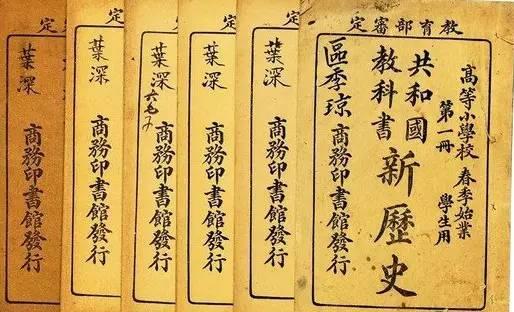 教育部審定
高等小學校 春季始業
第一冊 學生用
共和國
教科書
新歷史
區季琼
商務印書館發行
審定
葉深
商務印書館發行
審定
葉深
商務印書館發行
審定
葉深
商務印書館發行
審定
葉深
商務印書館發行
審定
葉深
商務印書館發行